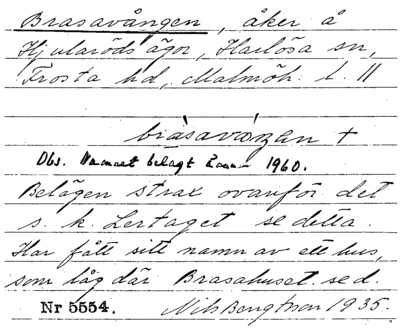 Brasavången, åker å
Hjularöds ägor, Harlösa sn,
Frosta hd, Malmöh. l. 11
bräsavåŋen +
Obs. Namnet belagt 1960.
Belägen strax ovanför det
s. k. Lertaget se detta.
Har fått sitt namn av ett hus,
som låg där Brasahuset. se d.
Nr 5554. Nils Bengtson 1935.